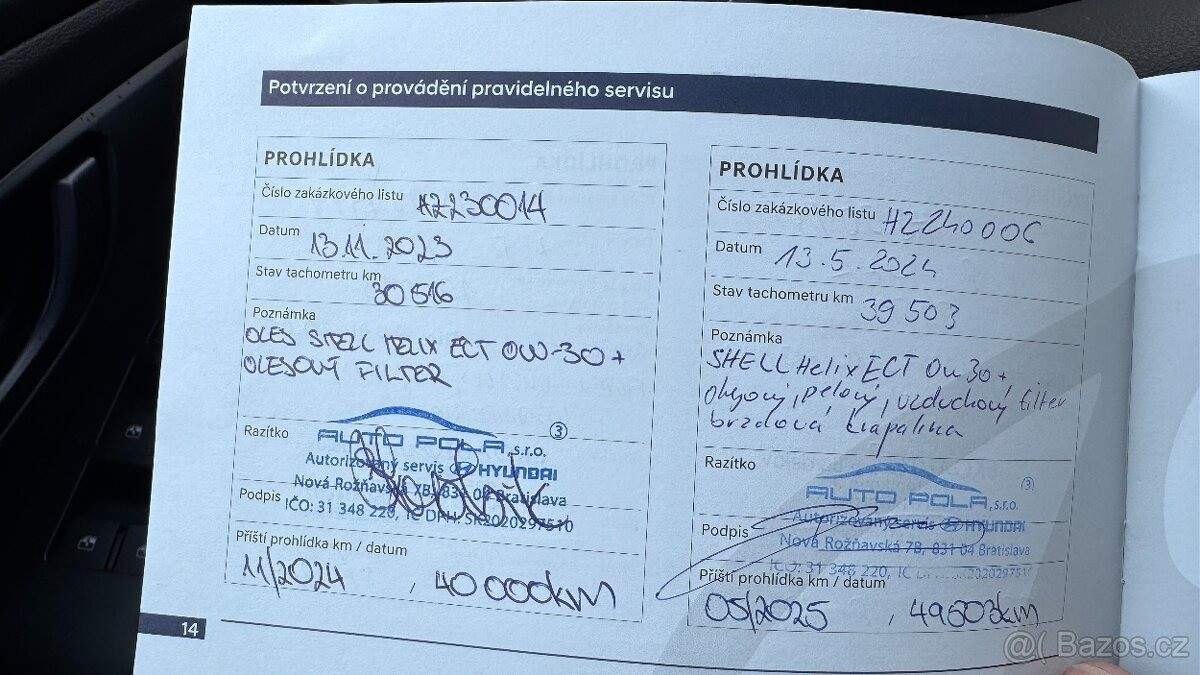 Potvrzení o provádění pravidelného servisu
PROHLÍDKA
Číslo zakázkového listu HZ230014
Datum 13.11.2023
Stav tachometru km 30 516
Poznámka
OLEJ SHELL HELIX ECT 0W-30+
OLEJOVÝ FILTER
Razítko
3
AUTO POLA, s.r.o.
Autorizovaný servis HYUNDAI
Nová Rožňavská 7B, 831 04 Bratislava
Podpis
IČO: 31 348 220, IČ DPH: SK2020297510
Příští prohlídka km / datum
11/2024 , 40 000km
PROHLÍDKA
Číslo zakázkového listu HZ240006
Datum 13.5.2024
Stav tachometru km 39 503
Poznámka
SHELL Helix ECT 0W30+
olejový, peľový, vzduchový filter
brzdová kvapalina
Razítko
3
AUTO POLA, s.r.o.
Autorizovaný servis HYUNDAI
Podpis
Nová Rožňavská 7B, 831 04 Bratislava
IČO: 31 348 220, IČ
Příští prohlídka km / datum
05/2025 , 49503km
14
Bazos.cz